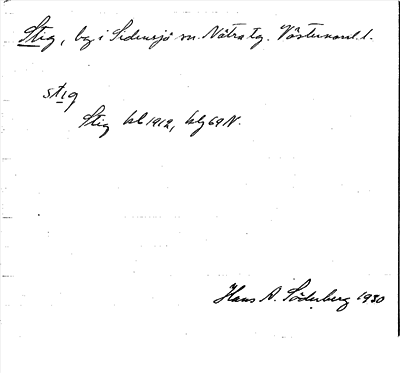 Stig, by i Sidensjö sn. Nätra tg. Västernorrl. l.
stig
Stig kbl 1912, kbg 69 N.
Hans A. Söderberg 1930